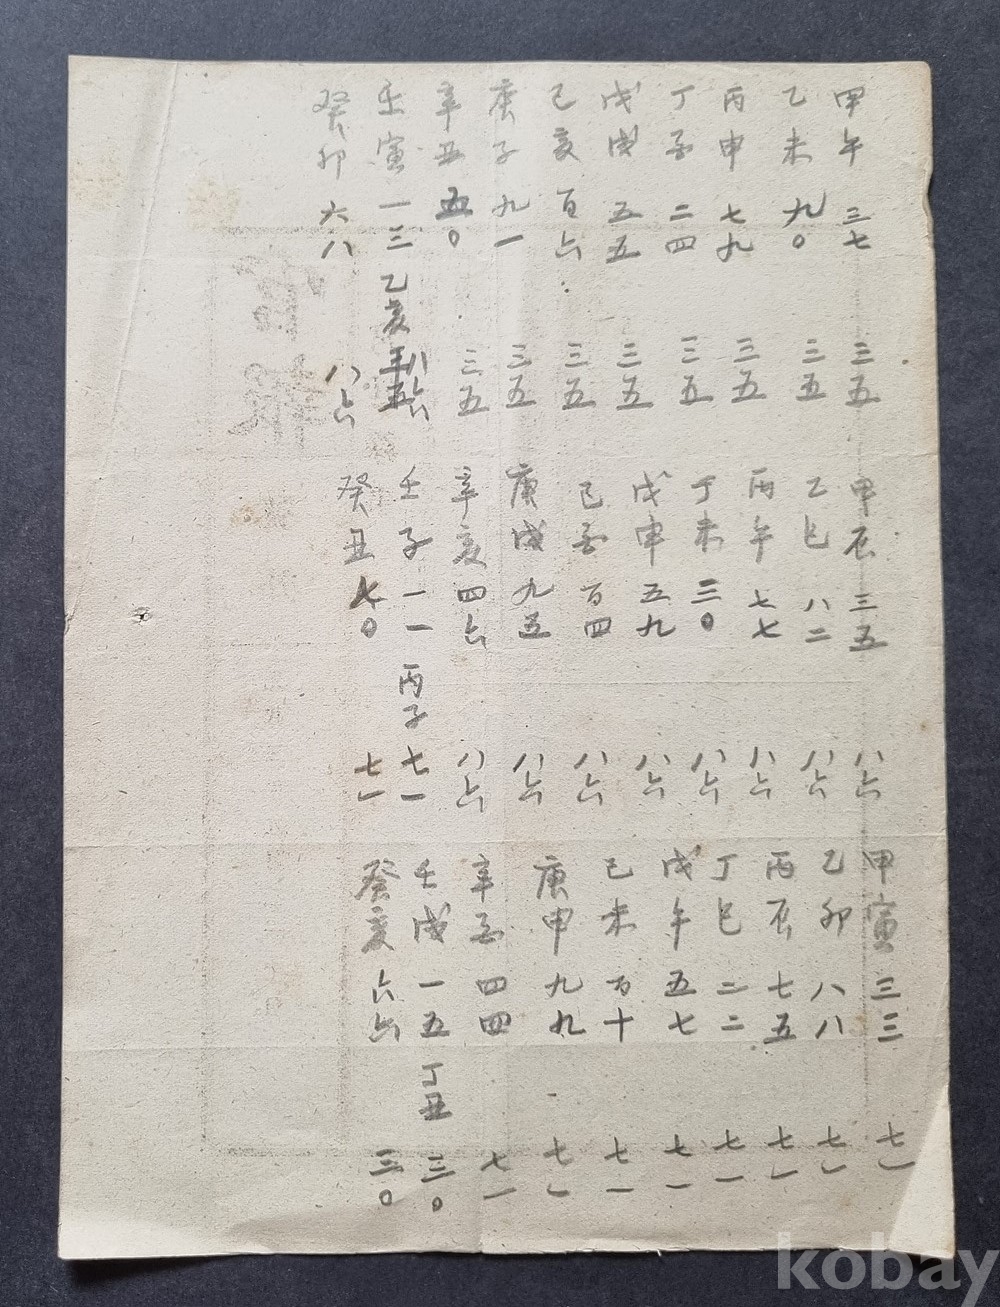 甲午 三七 三五
乙未 九〇 三五
丙申 七九 三五
丁酉 二四 三五
戊戌 五五 三五
己亥 百六 三五
庚子 九一 三五
辛丑 五〇 三五
壬寅 一三 乙亥 八六
癸卯 六八 八六
甲辰 三五 八六
乙巳 八二 八六
丙午 七七 八六
丁未 三〇 八六
戊申 五九 八六
己酉 百四 八六
庚戌 九五 八六
辛亥 四六 八六
壬子 一一 丙子 七一
癸丑 七〇 七一
甲寅 三三 七一
乙卯 八八 七一
丙辰 七五 七一
丁巳 二二 七一
戊午 五七 七一
己未 百十 七一
庚申 九九 七一
辛酉 四四 七一
壬戌 一五 丁丑 三〇
癸亥 六六 三〇
kobay